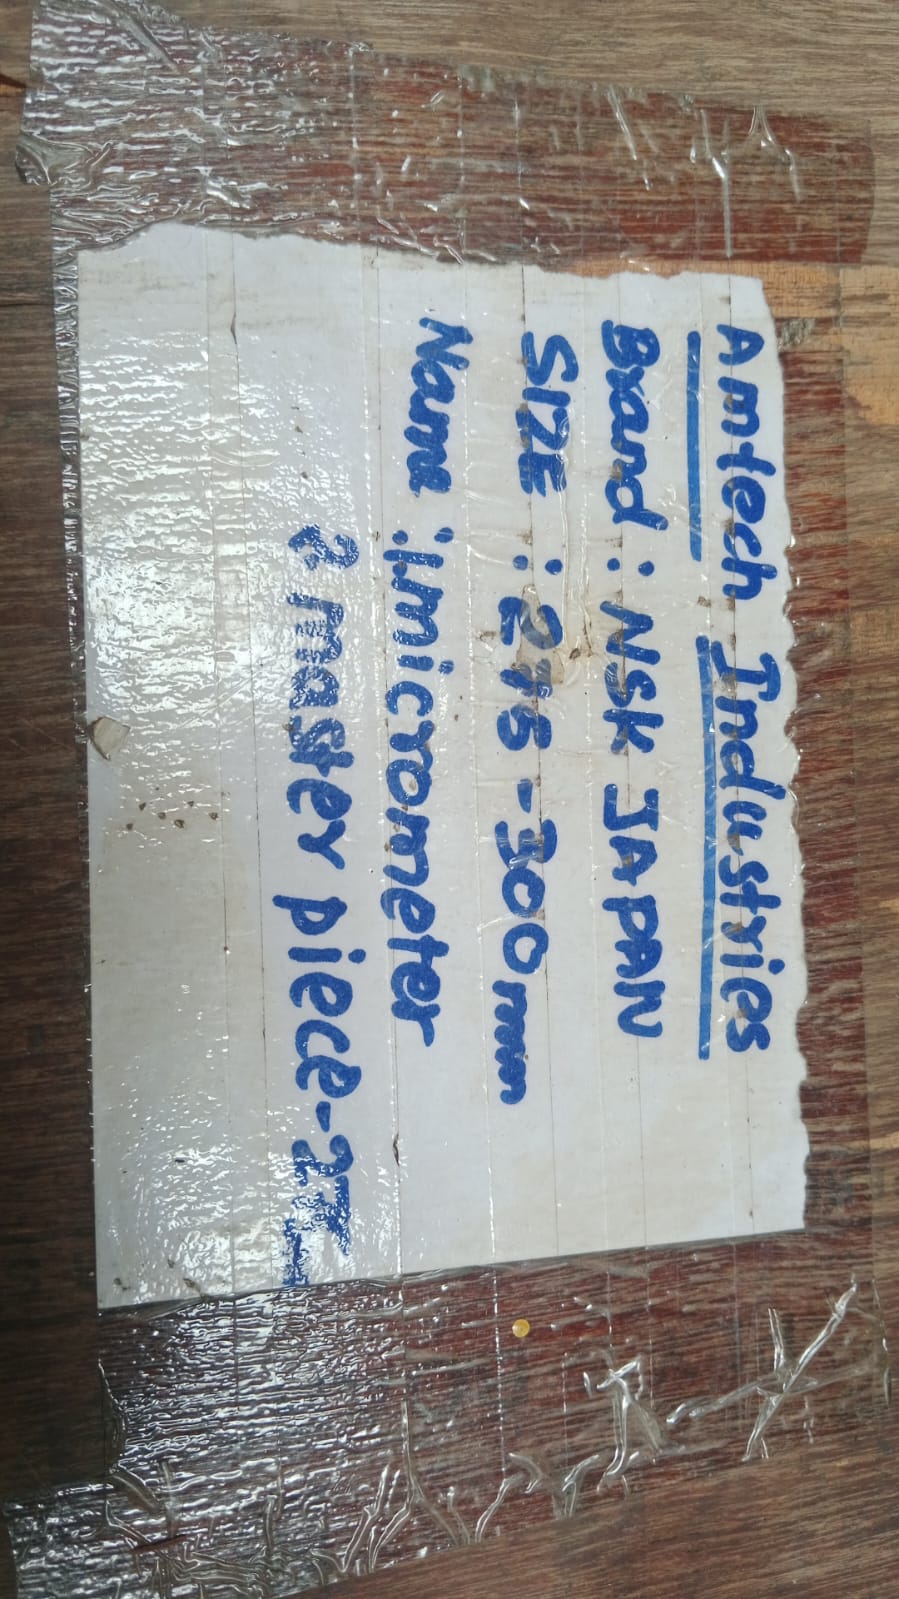 Amtech Industries
Brand : NSK JAPAN
SIZE : 275 - 300mm
Name : 1.micrometer
2 master piece-2